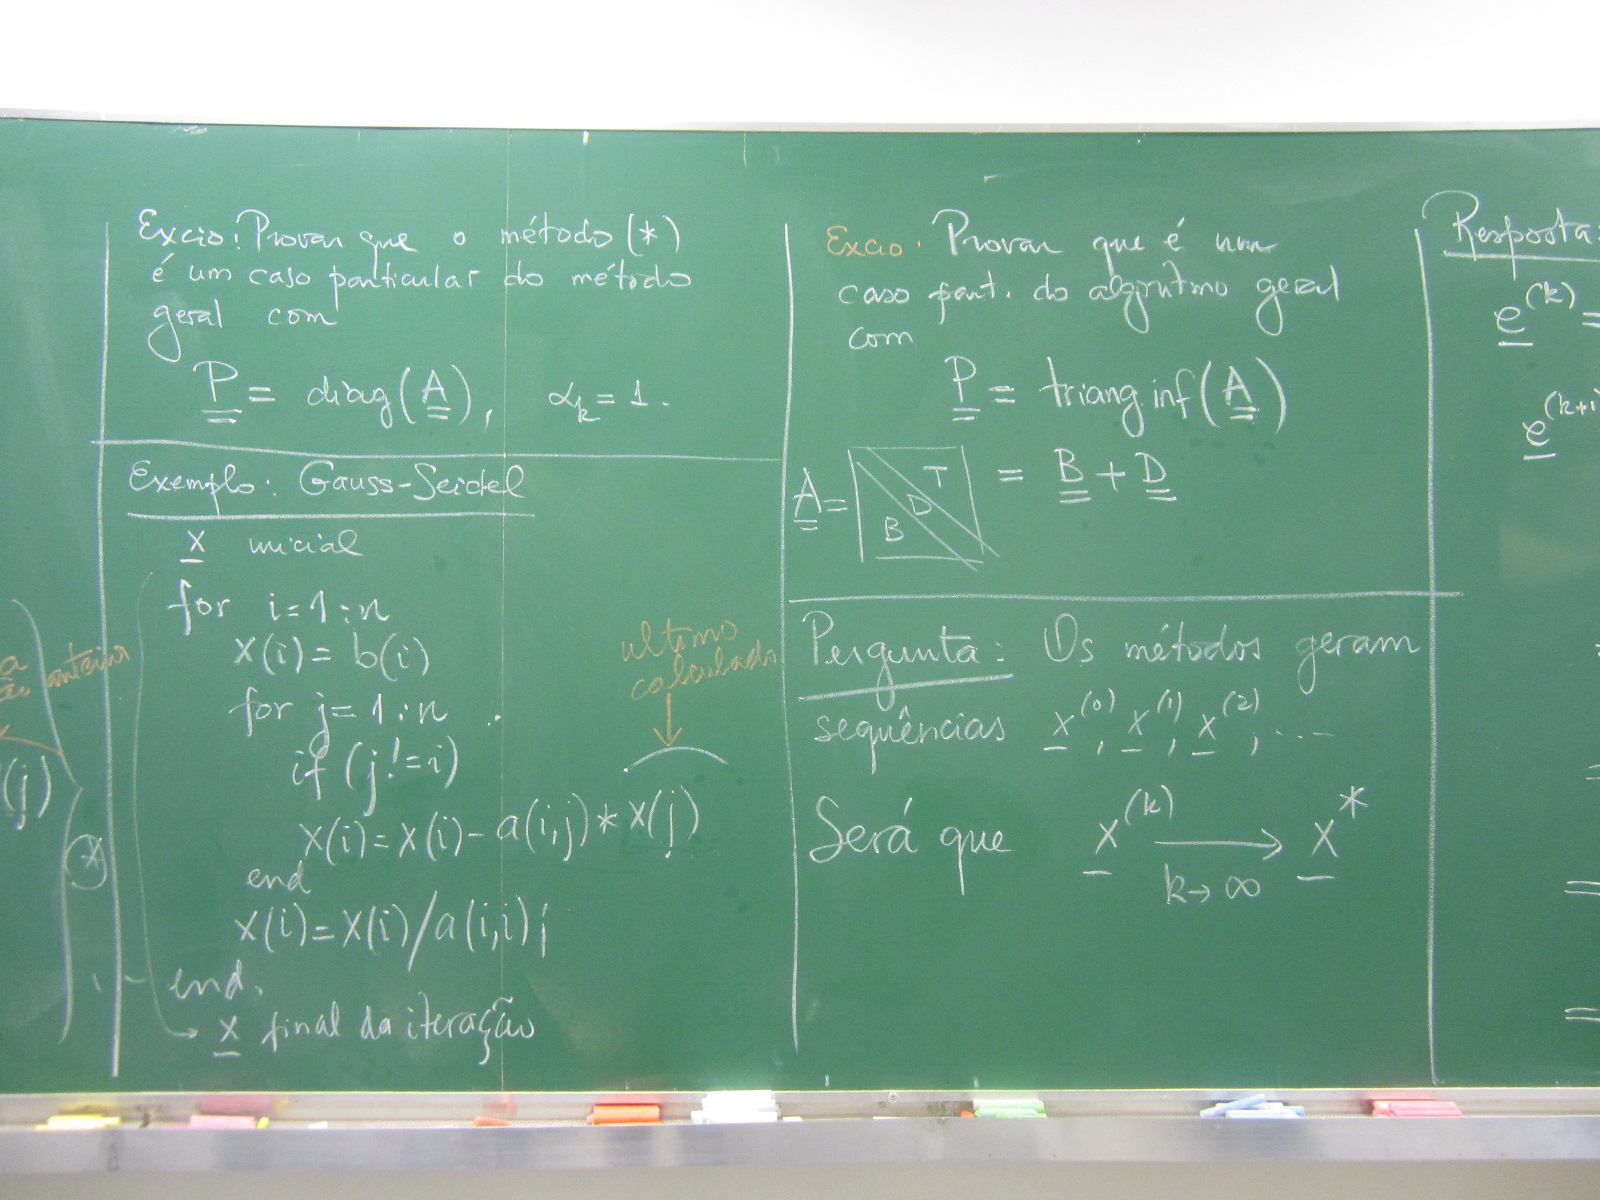 Excio: Provar que o método (*)
é um caso particular do método
geral com
P = diag(A), αₖ = 1.
Exemplo: Gauss-Seidel
x inicial
for i=1:n
x(i) = b(i)
for j=1:n
if (j!=i)
x(i)=x(i)-a(i,j)*x(j)
end
x(i)=x(i)/a(i,i);
end.
x final da iteração
ultimo
calculado
anterior
(j)
*
Excio: Provar que é um
caso part. do algoritmo geral
com
P = triang inf(A)
A = B D T = B + D
Pergunta: Os métodos geram
sequências x^(0), x^(1), x^(2), ...
Será que x^(k) → x*
k→∞
Resposta:
e^(k) =
e^(k+1)
=
=
=